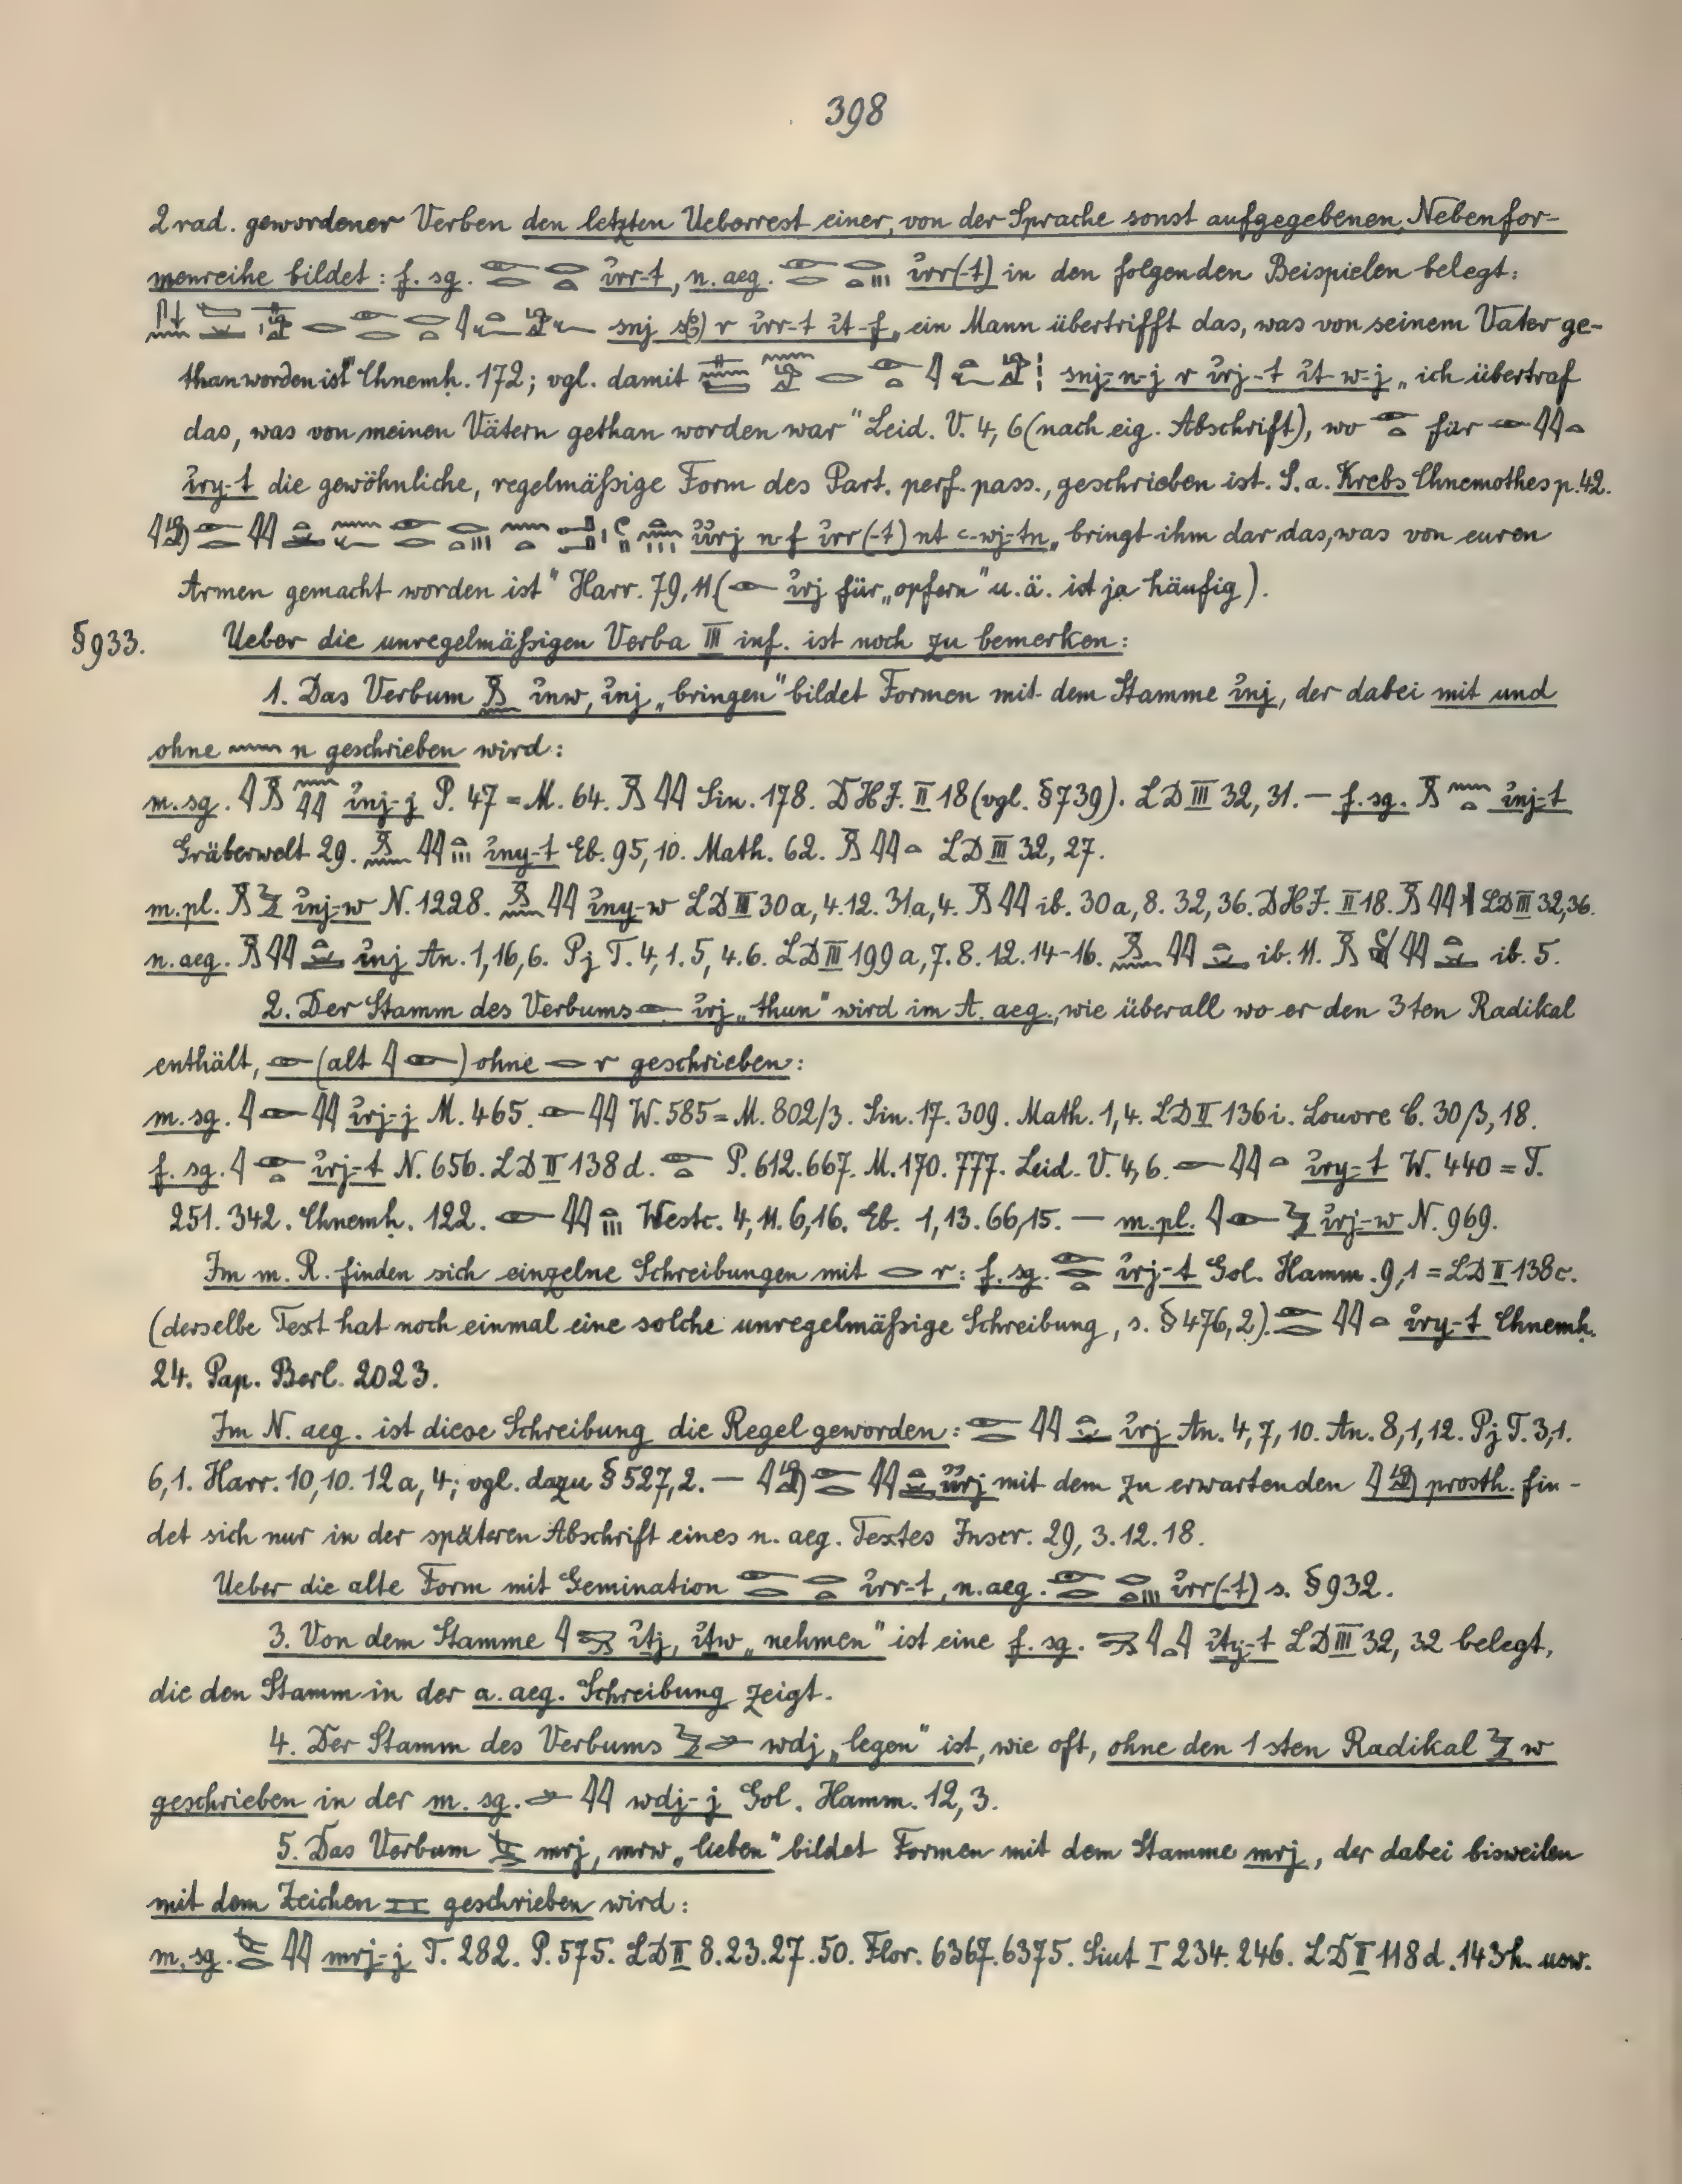 398
2 rad. gewordener Verben den letzten Ueberrest einer, von der Sprache sonst aufgegebenen, Nebenfor-
menreihe bildet: f. sg. 𓁹𓂋 𓂋𓏏 ἰrr-t, n. aeg. 𓁹𓂋 𓂋𓏏𓏥 ἰrr(-t) in den folgenden Beispielen belegt:
snj r ἰrr-t ἰt-f „ein Mann übertrifft das, was von seinem Vater ge-
than worden ist" Chnemḥ. 172; vgl. damit snj-n-j r ἰrj-t ἰt-w-j „ich übertraf
das, was von meinen Vätern gethan worden war" Leid. V. 4, 6 (nach eig. Abschrift), wo 𓁹𓏏 für 𓁹𓇋𓇋𓏏
ἰry-t die gewöhnliche, regelmäßige Form des Part. perf. pass., geschrieben ist. S. a. Krebs Chnemothes p. 42.
ἰἰrj n-f ἰrr(-t) nt c-wj-tn „bringt ihm dar das, was von euren
Armen gemacht worden ist" Harr. 79, 11 (𓁹 ἰrj für „opfern" u. ä. ist ja häufig).
§ 933. Ueber die unregelmäßigen Verba III inf. ist noch zu bemerken:
1. Das Verbum 𓏎𓈖 ἰnw, ἰnj „bringen" bildet Formen mit dem Stamme ἰnj, der dabei mit und
ohne 𓈖 n geschrieben wird:
m. sg. 𓇋𓏎𓈖𓇋𓇋 ἰnj-j P. 47 = M. 64. 𓏎𓇋𓇋 Sin. 178. DHJ. II 18 (vgl. § 739). LD III 32, 31. — f. sg. 𓏎𓈖𓏏 ἰnj-t
Gräberwelt 29. 𓏎𓈖𓇋𓇋𓏏𓏥 ἰny-t Eb. 95, 10. Math. 62. 𓏎𓇋𓇋𓏏 LD III 32, 27.
m. pl. 𓏎𓅱 ἰnj-w N. 1228. 𓏎𓈖𓇋𓇋 ἰny-w LD III 30a, 4. 12. 31a, 4. 𓏎𓇋𓇋 ib. 30a, 8. 32, 36. DHJ. II 18. 𓏎𓇋𓇋 LD III 32, 36.
n. aeg. 𓏎𓇋𓇋 ἰnj An. 1, 16, 6. Pj T. 4, 1. 5, 4. 6. LD III 199a, 7. 8. 12. 14-16. 𓏎𓈖𓇋𓇋 ib. 11. 𓏎 𓇋𓇋 ib. 5.
2. Der Stamm des Verbums 𓁹 ἰrj „thun" wird im A. aeg., wie überall wo er den 3ten Radikal
enthält, 𓁹 (alt 𓇋𓁹) ohne 𓂋 r geschrieben:
m. sg. 𓇋𓁹𓇋𓇋 ἰrj-j M. 465. 𓁹𓇋𓇋 W. 585 = M. 802/3. Sin. 17. 309. Math. 1, 4. LD II 136i. Louvre C. 30/3, 18.
f. sg. 𓇋𓁹𓏏 ἰrj-t N. 656. LD II 138d. 𓁹𓏏 P. 612. 667. M. 170. 777. Leid. V. 4, 6. 𓁹𓇋𓇋𓏏 ἰry-t W. 440 = T.
251. 342. Chnemḥ. 122. 𓁹𓇋𓇋𓏏𓏥 Westc. 4, 11. 6, 16. Eb. 1, 13. 66, 15. — m. pl. 𓇋𓁹𓅱 ἰrj-w N. 969.
Im m. R. finden sich einzelne Schreibungen mit 𓂋 r: f. sg. 𓁹𓂋𓏏 ἰrj-t Gol. Hamm. 9, 1 = LD II 138c.
(derselbe Text hat noch einmal eine solche unregelmäßige Schreibung, s. § 476, 2). 𓁹𓂋𓇋𓇋𓏏 ἰry-t Chnemḥ.
24. Pap. Berl. 2023.
Im N. aeg. ist diese Schreibung die Regel geworden: 𓁹𓂋𓇋𓇋 ἰrj An. 4, 7, 10. An. 8, 1, 12. Pj T. 3, 1.
6, 1. Harr. 10, 10. 12a, 4; vgl. dazu § 527, 2. — 𓇋𓀁𓁹𓂋𓇋𓇋 ἰἰrj mit dem zu erwartenden 𓇋𓀁 prosth. fin-
det sich nur in der späteren Abschrift eines n. aeg. Textes Inscr. 29, 3. 12. 18.
Ueber die alte Form mit Gemination 𓁹𓂋 𓂋𓏏 ἰrr-t, n. aeg. 𓁹𓂋 𓂋𓏏𓏥 ἰrr(-t) s. § 932.
3. Von dem Stamme ἰṯj, ἰṯw „nehmen" ist eine f. sg. ἰṯj-t LD III 32, 32 belegt,
die den Stamm in der a. aeg. Schreibung zeigt.
4. Der Stamm des Verbums wdj „legen" ist, wie oft, ohne den 1sten Radikal 𓅱 w
geschrieben in der m. sg. 𓇋𓇋 wdj-j Gol. Hamm. 12, 3.
5. Das Verbum mrj, mrw „lieben" bildet Formen mit dem Stamme mrj, der dabei bisweilen
mit dem Zeichen geschrieben wird:
m. sg. 𓇋𓇋 mrj-j T. 282. P. 575. LD II 8. 23. 27. 50. Flor. 6367. 6375. Siut I 234. 246. LD II 118d. 143h. usw.